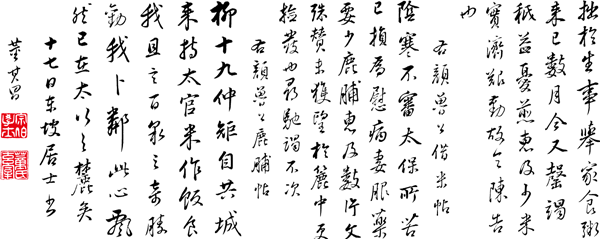 拙於生事舉家食粥
来已數月今又罄竭
秖益憂煎惠及少米
實濟艱勤故令陳告
也
右顏魯公借米帖
陰寒不審太保所苦
已損為慰病妻服藥
要少鹿脯惠及數片又
殊賛未獲望於麓中更
捡發也尋馳謁不次
右顏魯公鹿脯帖
柳十九仲矩自共城
来持太官米作飯食
我且言百泉之奇勝
勸我卜鄰此心飄
然已在太行之麓矣
十七日东坡居士书
董其昌
宗伯學士
董氏玄宰